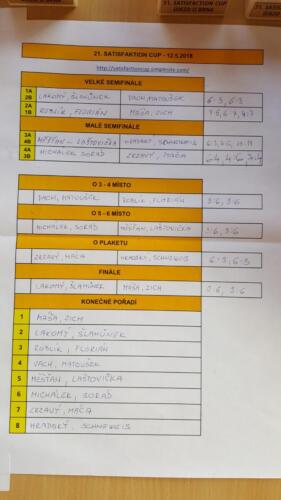 21. SATISFACTION CUP
21. SATISFAKTION CUP - 12.5.2018
http://satisfactioncup.simplesite.com/
VELKÉ SEMIFINÁLE
1A 2B LAKOMÝ, ŠLAHŮNEK VACH, MATOUŠEK 6:3, 6:3
2A 1B ROBLÍK, FLORIÁN MAŠA, ZICH
MALÉ SEMIFINÁLE
3A 4B MĚŠŤAN - LAŠTOVIČKA HRADSKÝ, SCHNEWEIS
4A 3B MICHÁLEK SORÁD ZRZAVÝ, MAČA
O 3 - 4 MÍSTO
VACH, MATOUŠEK ROBLÍK, FLORIÁN 3:6, 3:6
O 5 - 6 MÍSTO
MICHÁLEK, SORÁD MĚŠŤAN, LAŠTOVIČKA
O PLAKETU
ZRZAVÝ, MAČA HRADSKÝ, SCHNEWEIS 6-3, 6-3
FINÁLE
LAKOMÝ, ŠLAHŮNEK MAŠA, ZICH
KONEČNÉ POŘADÍ
1 MAŠA, ZICH
2 LAKOMÝ, ŠLAHŮNEK
3 ROBLÍK, FLORIÁN
4 VACH, MATOUŠEK
5 MĚŠŤAN, LAŠTOVIČKA
6 MICHÁLEK, SORÁD
7 ZRZAVÝ, MAČA
8 HRADSKÝ, SCHNEWEIS